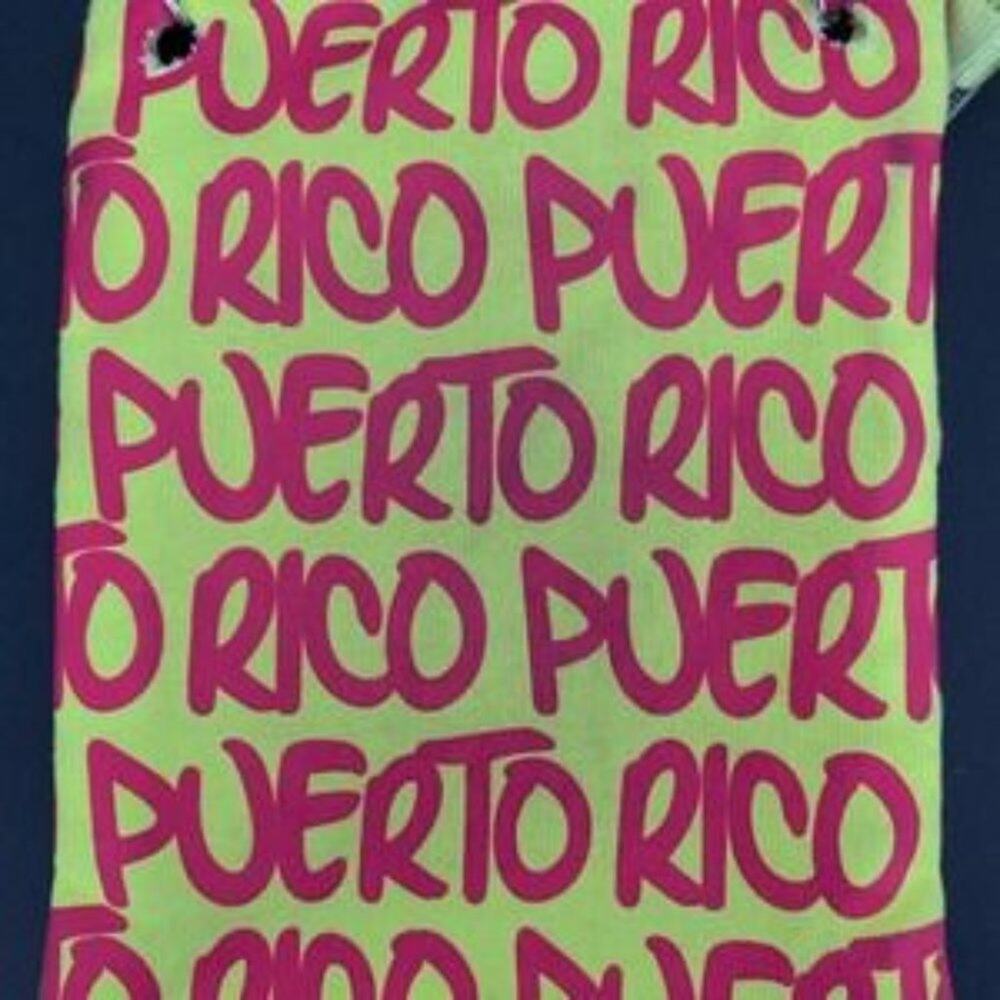 PUERTO RICO
TO RICO PUERT
PUERTO RICO
TO RICO PUERT
PUERTO RICO
TO RICO PUERT